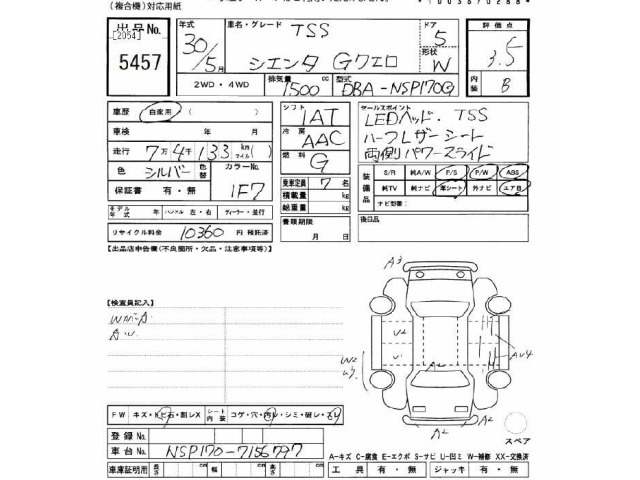 (複合機)対応用紙
出品No.
[2054]
5457
年式 30/5月
車名・グレード TSS
シエンタ Gクエロ
ドア 5
形状 W
評価点 3.5
内装 B
2WD・4WD
排気量 1500 cc
型式 DBA-NSP170G
車歴 自家用 ( )
車検 年 月
走行 7万4千133 km マイル( )
色 シルバー 色替 カラーNo. 1F7
保証書 有・無
シフト IAT
冷房 AAC
燃料 G
セールスポイント
LEDヘッド、TSS
ハーフレザーシート
両側パワースライド
装備品 S/R 純A/W P/S P/W ABS
純TV 純ナビ 革シート 外ナビ エアB
ナビ型番:
乗車定員 7 名
積載量 kg
総重量 kg
モデル年式 年 ハンドル 左・右 ディーラー・並行
リサイクル料金 10360 円 預託済
書類期限 月 日
後日品
【出品店申告欄(不良箇所・欠品・注意事項等)】
【検査員記入】
A3
V2
V1
W2
AU4
A2
A2
A2
FW キズ・ヒビ・石・割レX
シート内装 コゲ・穴・汚レ・シミ・破レ・スレ
登録No.
車台No. NSP170-7156797
スペア
車庫証明用 長さ cm 幅 cm 高さ cm
A-キズ C-腐食 E-エクボ S-サビ U-凹ミ W-補修 XX-交換済
工具 有・無 ジャッキ 有・無